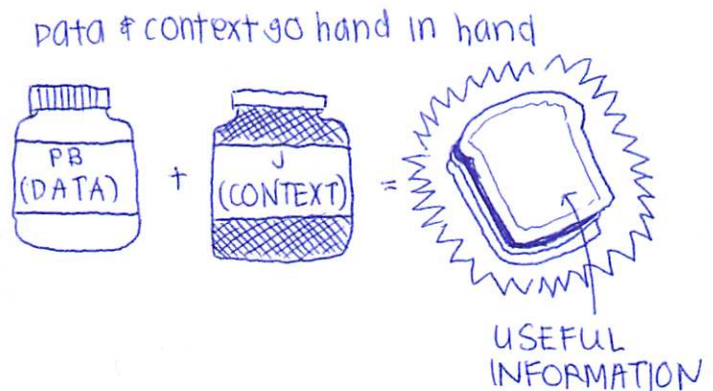 Data & context go hand in hand
PB
(DATA)
+
J
(CONTEXT)
=
USEFUL
INFORMATION